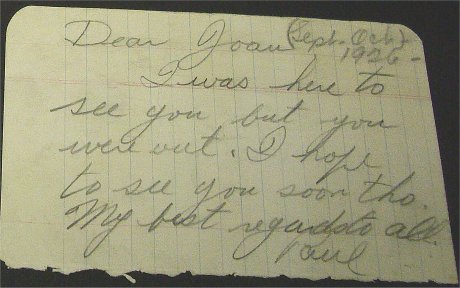 Dear Joan (Sept. Oct.)
1926-
I was here to
see you but you
were out. I hope
to see you soon tho.
My best regards to all.
Paul